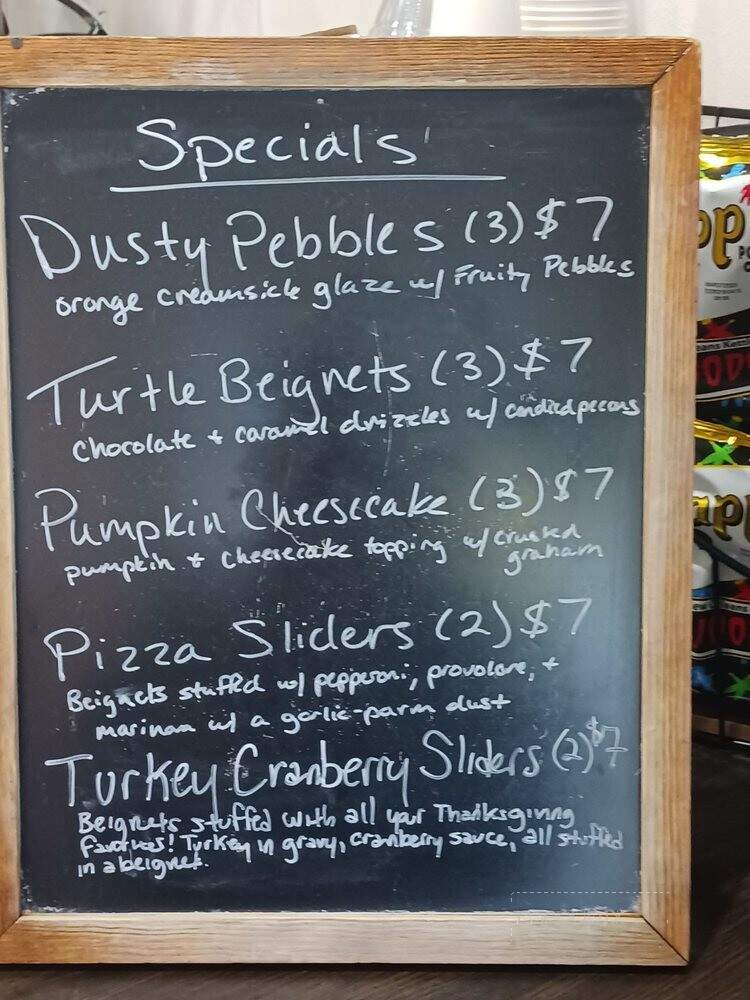 Specials
Dusty Pebbles (3) $7
orange creamsicle glaze w/ Fruity Pebbles
Turtle Beignets (3) $7
chocolate + caramel drizzles w/ candied pecans
Pumpkin Cheesecake (3) $7
pumpkin + cheesecake topping w/ crushed
graham
Pizza Sliders (2) $7
Beignets stuffed w/ pepperoni, provolone, +
marinara w/ a garlic-parm dust
Turkey Cranberry Sliders (2) $7
Beignets stuffed with all your Thanksgiving
favorites! Turkey in gravy, cranberry sauce, all stuffed
in a beignet.